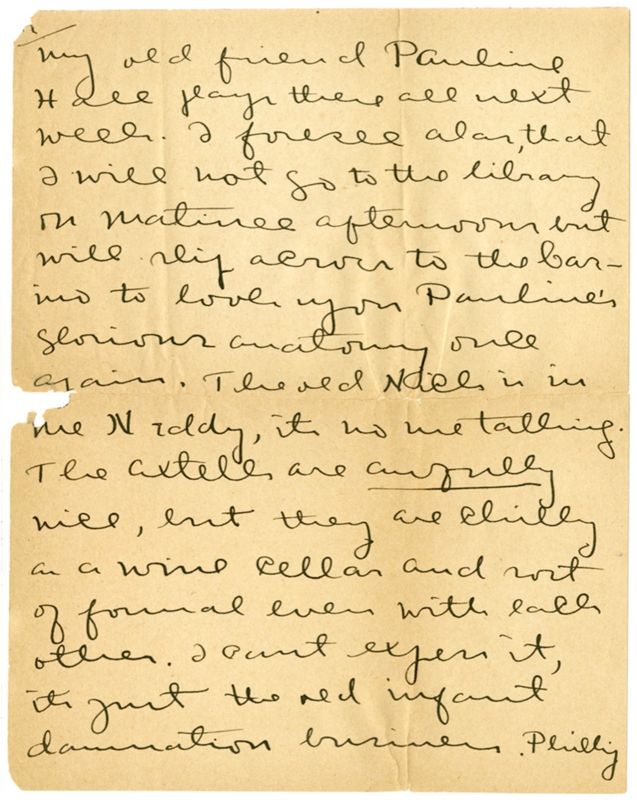 my old friend Pauline
Hall plays there all next
week. I foresee alas, that
I will not go to the library
on matinee afternoons but
will slip across to the Cas-
ino to look upon Pauline's
glorious anatomy once
again. The old Nick is in
me N eddy, its no use talking.
The Axtells are awfully
nice, but they are chilly
as a wine cellar and sort
of formal even with each
other. I cant express it,
its just the old infant
damnation business. Philly